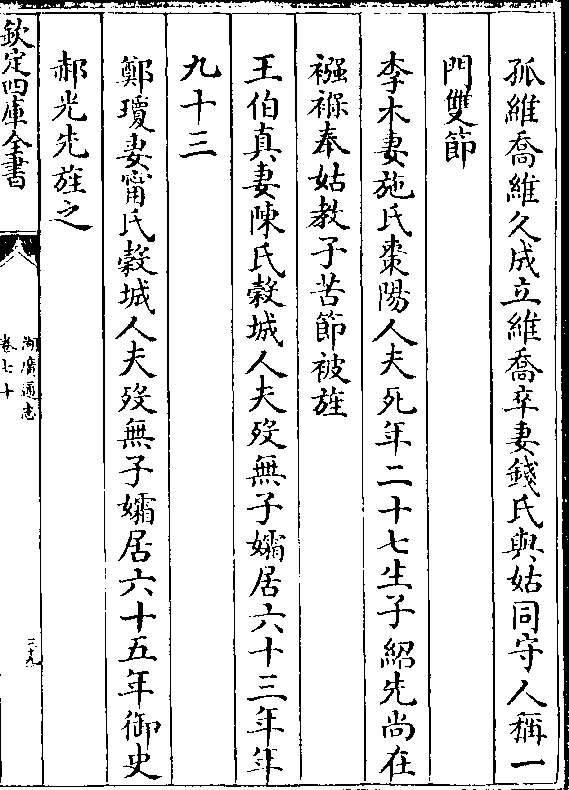 孤維喬維久成立維喬卒妻錢氏與姑同守人稱一
門雙節
李木妻施氏棗陽人夫死年二十七生子紹先尚在
襁褓奉姑教子苦節被旌
王伯真妻陳氏穀城人夫歿無子孀居六十三年年
九十三
鄭瓊妻甯氏穀城人夫歿無子孀居六十五年御史
郝光先旌之
欽定四庫全書
湖廣通志
卷七十
三九